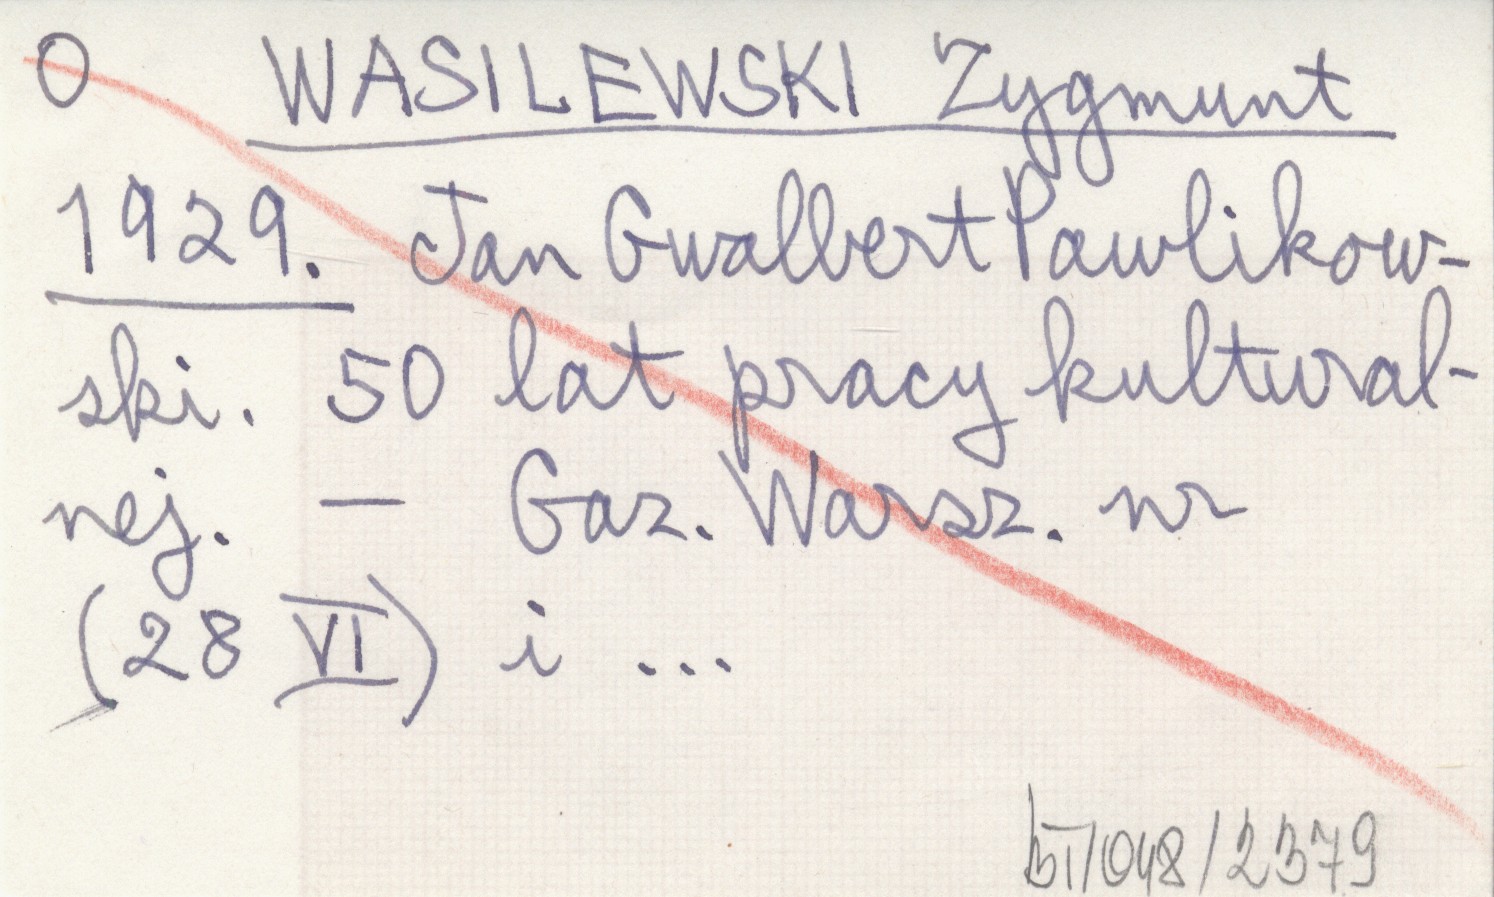 O WASILEWSKI Zygmunt
1929. Jan Gwalbert Pawlikow-
ski. 50 lat pracy kultural-
nej. — Gaz. Warsz. nr
(28 VI) i ...
bT/048/2379